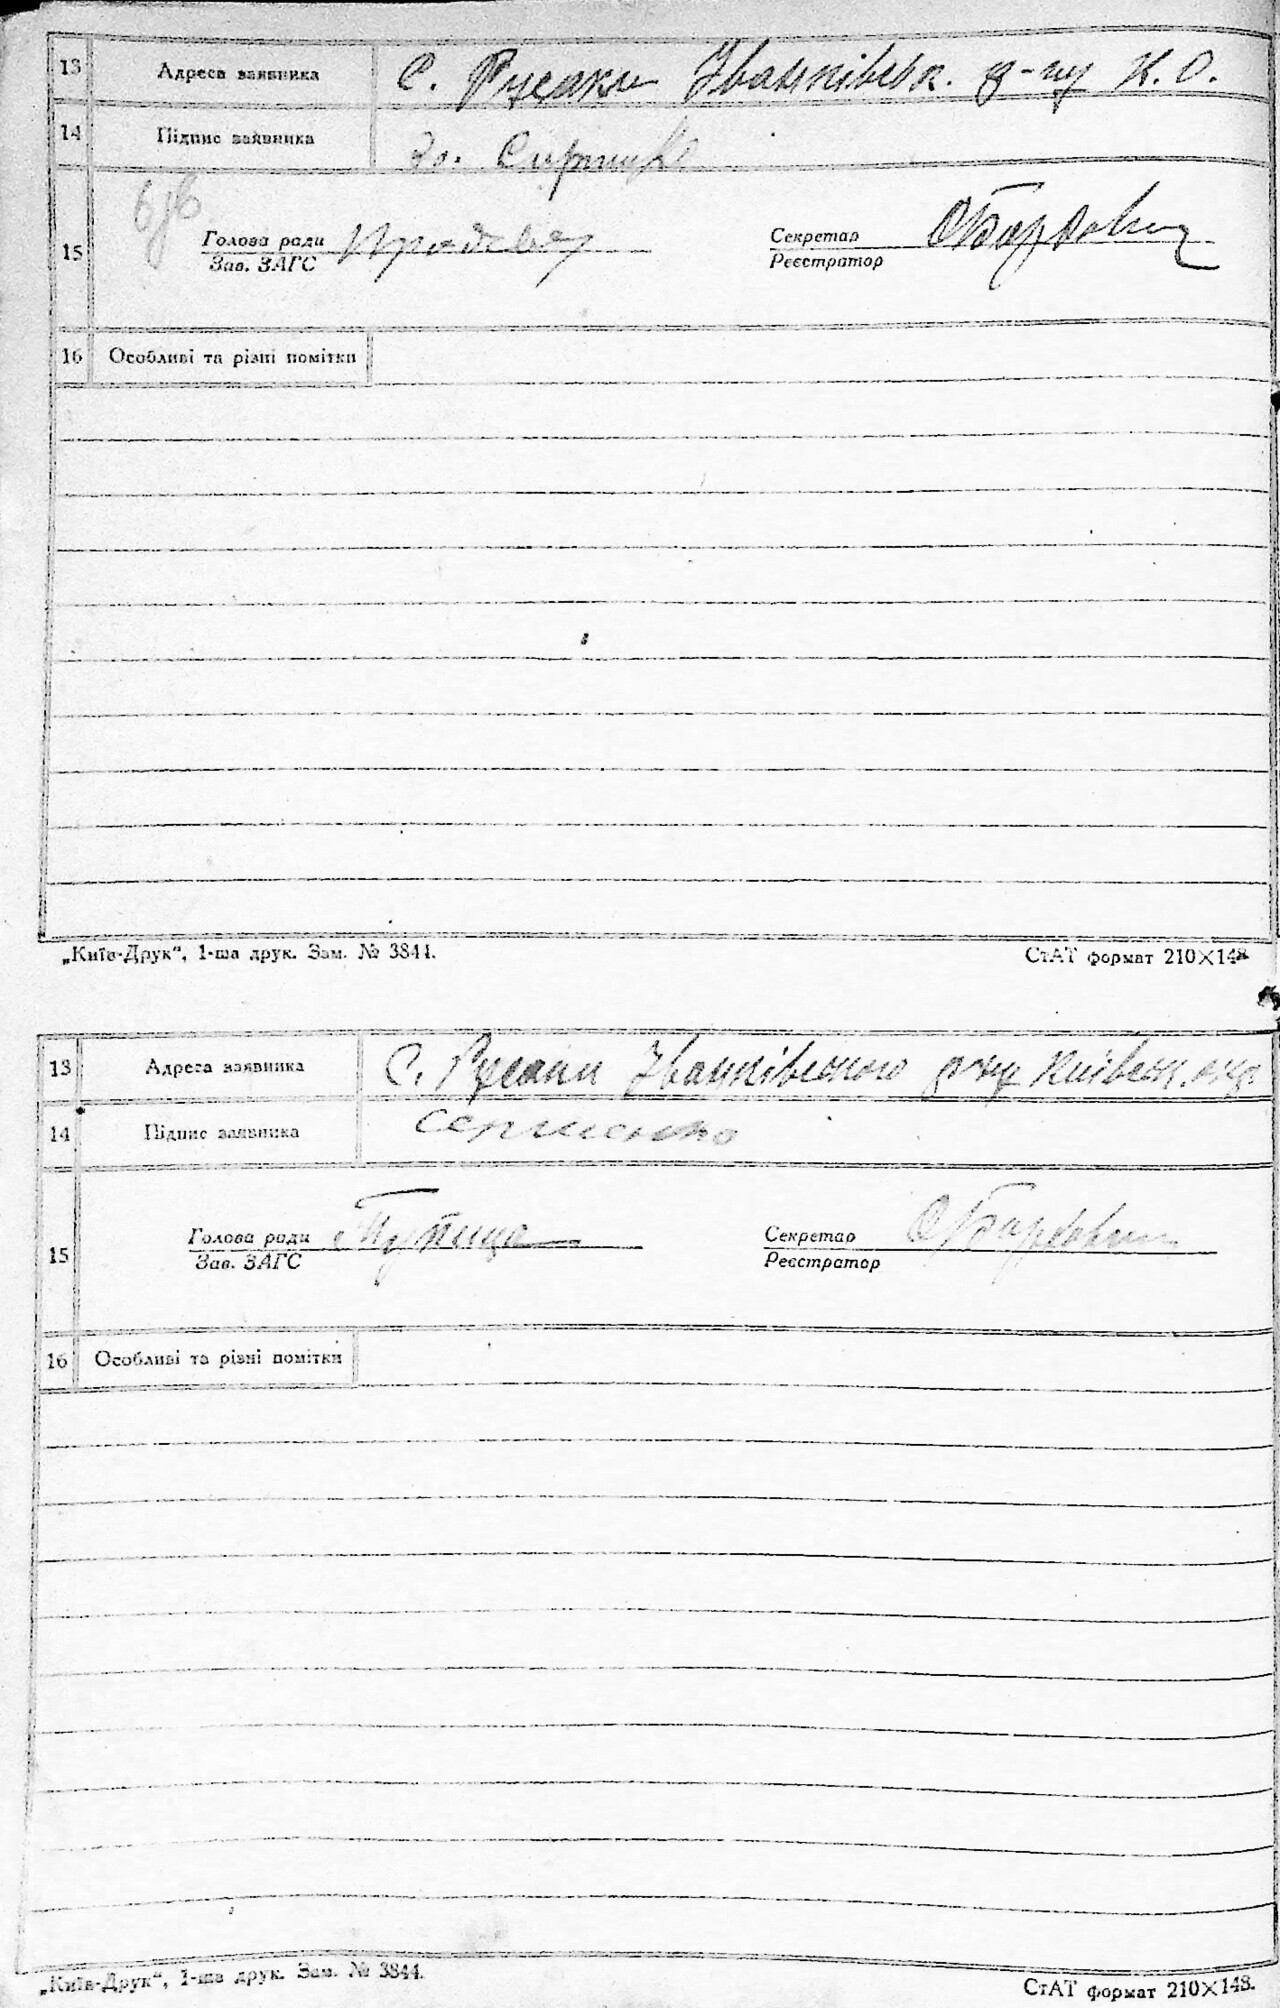 13 Адреса заявника С. Русаки Іванківськ. р-ну К. О.
14 Підпис заявника За.
15 Голова ради Секретар ОБардович
Зав. ЗАГС Реєстратор
16 Особливі та різні помітки
„Київ-Друк“, 1-ша друк. Зам. № 3844. СтАТ формат 210×148
13 Адреса заявника С. Русаки Іванківського р-ну Київськ. окр.
14 Підпис заявника Сергиенко
15 Голова ради Секретар ОБардович
Зав. ЗАГС Реєстратор
16 Особливі та різні помітки
„Київ-Друк“, 1-ша друк. Зам. № 3844. СтАТ формат 210×148.